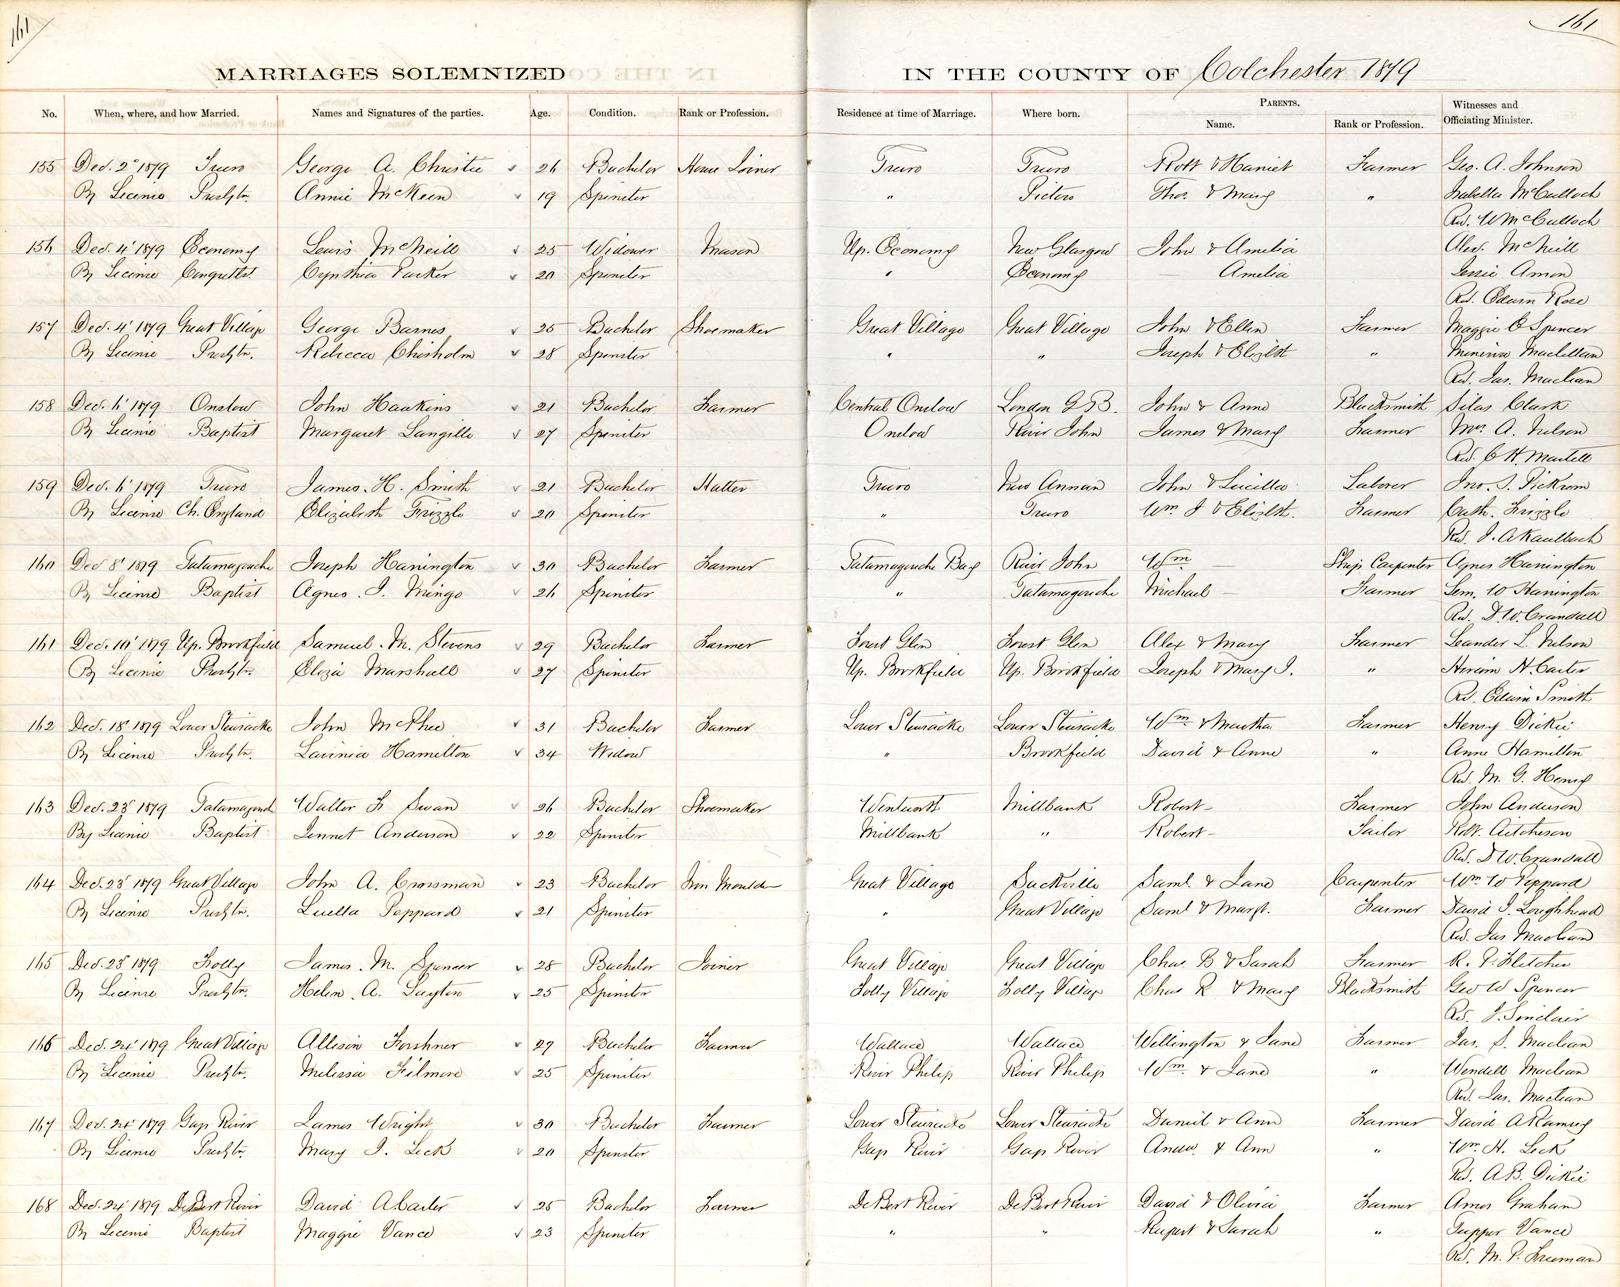 161 161
MARRIAGES SOLEMNIZED IN THE COUNTY OF Colchester 1879
No. When, where, and how Married. Names and Signatures of the parties. Age. Condition. Rank or Profession. Residence at time of Marriage. Where born. PARENTS. Name. Rank or Profession. Witnesses and Officiating Minister.
155 Dec. 2d 1879 Truro George A. Christie 26 Bachelor House Joiner Truro Truro Robt & Harriet Farmer Geo. A. Johnson
By License Presbytn. Annie McKeen 19 Spinster " Pictou Thos. & Mary " Isabella McCulloch
Rev. W McCulloch
156 Dec. 4' 1879 Economy Lewis McNeill 25 Widower Mason Up. Economy New Glasgow John & Amelia Alex. McNeill
By License Congretlst Cynthia Parker 20 Spinster " Economy — Amelia Jessie Amon
Rev. Edwin Rose
157 Dec. 4' 1879 Great Village George Barnes 25 Bachelor Shoemaker Great Village Great Village John & Ellen Farmer Maggie C Spencer
By License Presbytn. Rebecca Chisholm 28 Spinster " " Joseph & Elizbth " Minerva Maclellan
Rev. Jas. Maclean
158 Dec. 6' 1879 Onslow John Hawkins 21 Bachelor Farmer Central Onslow London G.B. John & Anne Blacksmith Silas Clark
By License Baptist Margaret Langille 27 Spinster Onslow River John James & Mary Farmer Mrs A. Nelson
Rev. C H. Martell
159 Dec. 6' 1879 Truro James. H. Smith 21 Bachelor Hatter Truro New Annan John & Lucilla Laborer Jno. S. Pickrom
By License Ch. England Elizabeth Frizzle 20 Spinster " Truro Wm J & Elizbth. Farmer Cath. Frizzle
Rev. J. A Kaulbach
160 Dec 8' 1879 Tatamagouche Joseph Hanington 30 Bachelor Farmer Tatamagouche Bay River John Wm — Ship Carpenter Agnes Hanington
By License Baptist Agnes. J. Mingo 26 Spinster " Tatamagouche Michael — Farmer Lem. W Hanington
Rev. D W. Crandall
161 Dec. 10' 1879 Up. Brookfield Samuel. M. Stevens 29 Bachelor Farmer Forest Glen Forest Glen Alex & Mary Farmer Leander L. Nelson
By License Presbytn. Eliza Marshall 27 Spinster Up. Brookfield Up. Brookfield Joseph & Mary J. " Hiram H. Carter
Rev. Edwin Smith
162 Dec. 18' 1879 Lower Stewiacke John McPhee 31 Bachelor Farmer Lower Stewiacke Lower Stewiacke Wm. & Martha Farmer Henry Dickie
By License Presbytn. Lavinia Hamilton 34 Widow " Brookfield David & Anne " Anne Hamilton
Rev. M. G. Henry
163 Dec. 23d 1879 Tatamagouch Walter F. Swan 26 Bachelor Shoemaker Wentworth Millbank Robert — Farmer John Anderson
By License Baptist Jennet Anderson 22 Spinster Millbank " Robert — Tailor Robt. Aitcheson
Rev. D W. Crandall
164 Dec. 23d 1879 Great Village John A. Crossman 23 Bachelor Iron Moulder Great Village Sackville Saml. & Jane Carpenter Wm W Peppard
By License Presbytn. Luella Peppard 21 Spinster " Great Village Saml & Margt. Farmer David J. Loughhead
Rev. Jas Maclean
165 Dec. 23d 1879 Folly James. M. Spencer 28 Bachelor Joiner Great Village Great Village Chas. B & Sarah Farmer R. P. Fletcher
By License Presbytn. Helen. A. Layton 25 Spinster Folly Village Folly Village Chas R & Mary Blacksmith Geo W Spencer
Rev. J. Sinclair
166 Dec. 24' 1879 Great Village Allison Forshner 27 Bachelor Farmer Wallace Wallace Wellington & Jane Farmer Jas. S. Maclean
By License Presbytn. Melissa Filmore 25 Spinster River Philip River Philip Wm. & Jane " Wendell Maclean
Rev. Jas. Maclean
167 Dec. 24' 1879 Gays River James Wright 30 Bachelor Farmer Lower Stewiacke Lower Stewiacke Daniel & Ann Farmer David A Ramsey
By License Presbytn. Mary J. Leck 20 Spinster Gays River Gays River Andw. & Ann " Wm. H. Leck
Rev. A. B. Dickie
168 Dec. 24' 1879 DeBert River David A Carter 25 Bachelor Farmer DeBert River DeBert River David & Olivia Farmer Amos Graham
By License Baptist Maggie Vance 23 Spinster " " Rupert & Sarah " Tupper Vance
Rev. M. P. Freeman